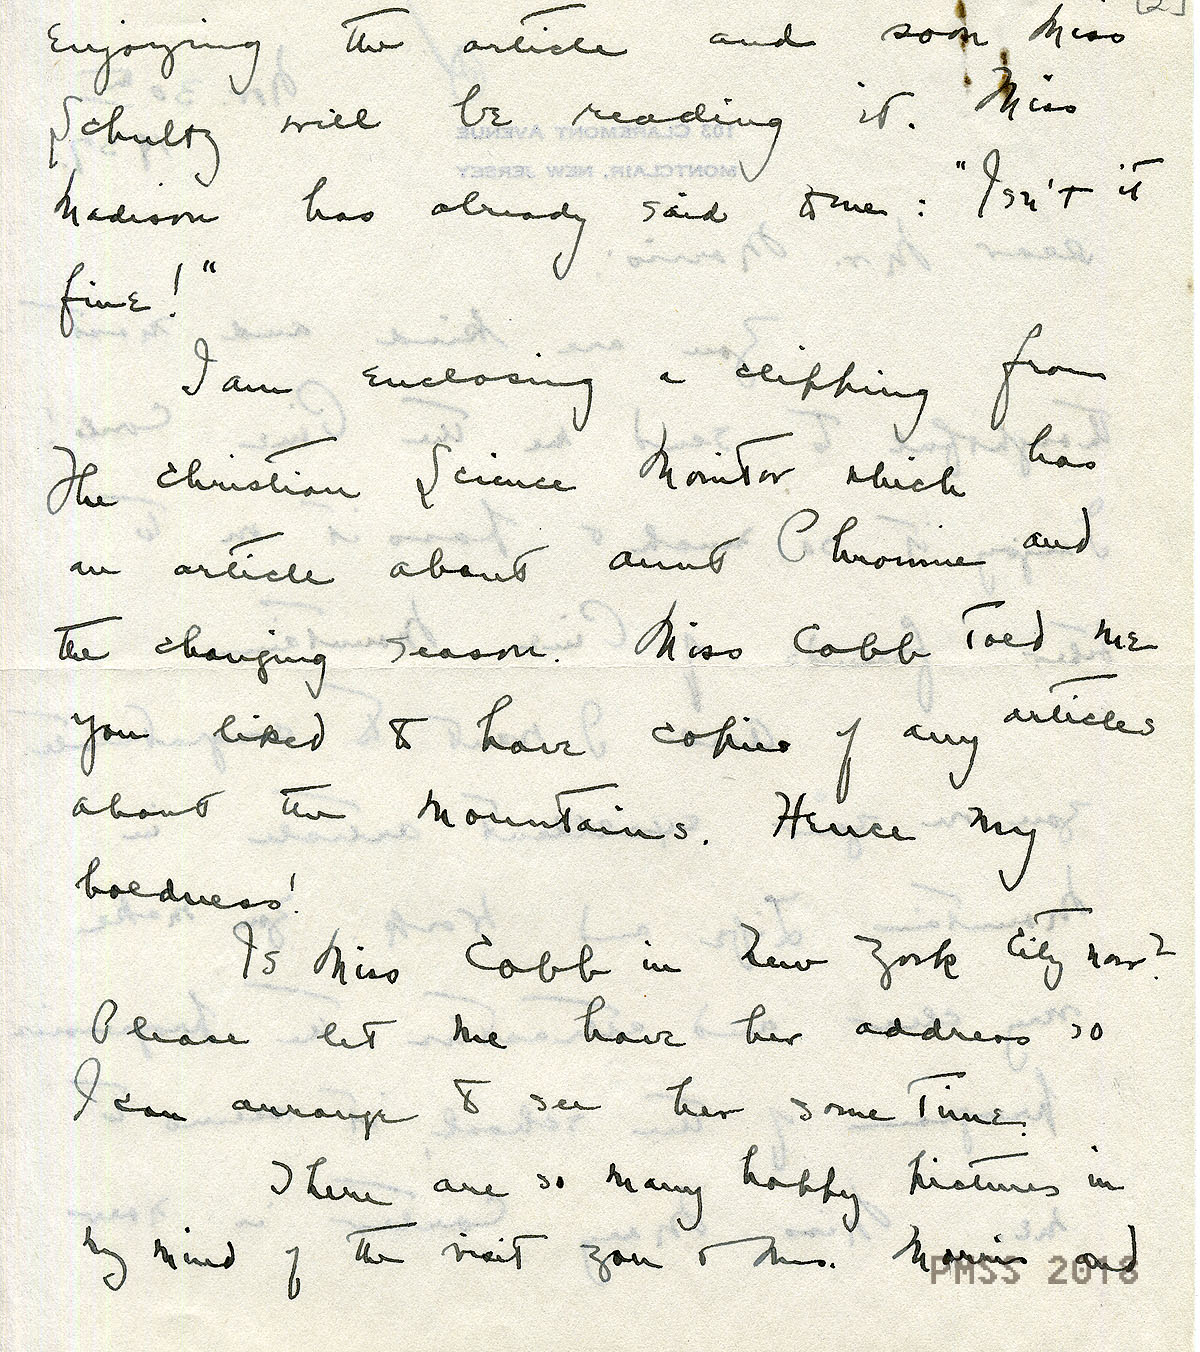 [2]
Enjoying the article and soon Miss
Schultz will be reading it. Miss
Madison has already said to me: "Isn't it
fine!"
I am enclosing a clipping from
The Christian Science Monitor which has
an article about aunt Chronnie and
the changing season. Miss Cobb told me
you liked to have copies of any articles
about the mountains. Hence my
boldness!
Is Miss Cobb in New York City now?
Please let me have her address so
I can arrange to see her some time.
There are so many happy pictures in
my mind of the visit you & Mrs. Morris and
PMSS 2018
103 CLAREMONT AVENUE
MONTCLAIR, NEW JERSEY